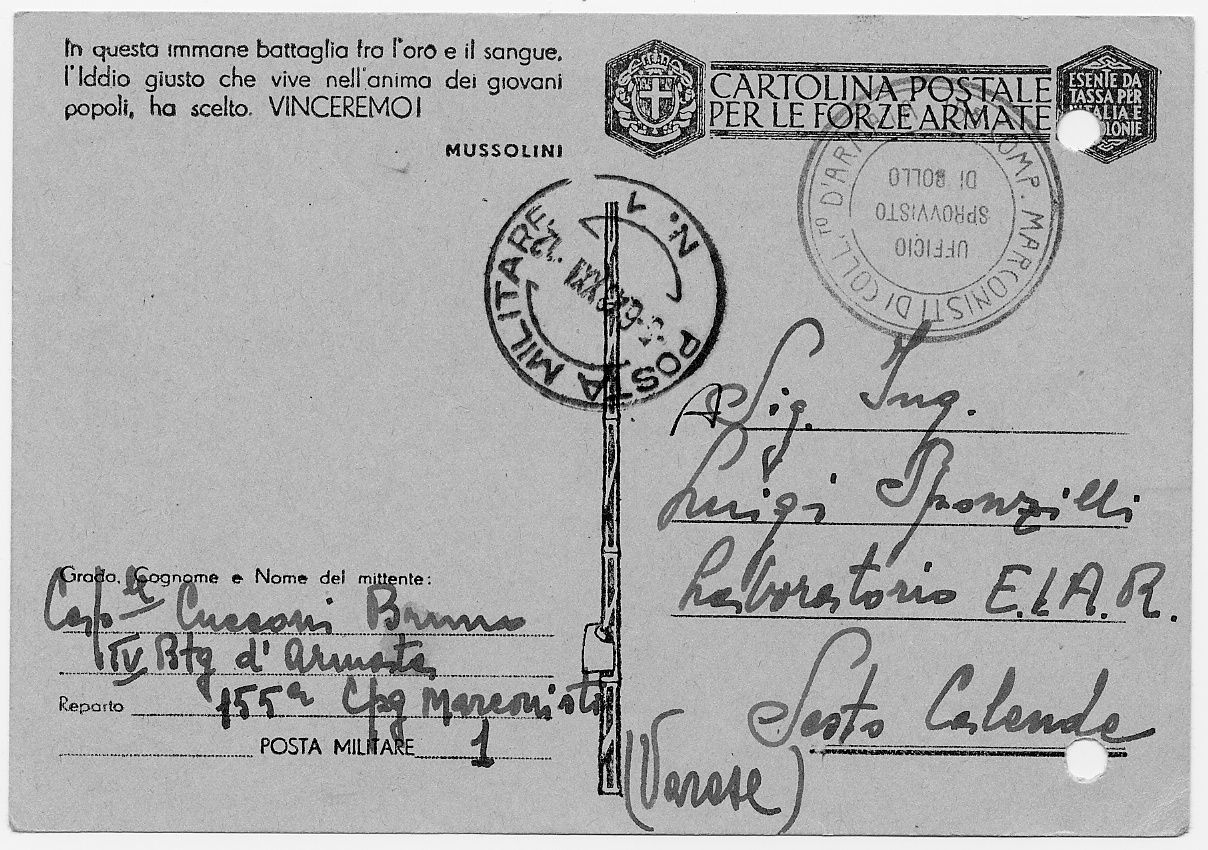 In questa immane battaglia fra l'oro e il sangue,
l'Iddio giusto che vive nell'anima dei giovani
popoli, ha scelto. VINCEREMO!
MUSSOLINI
CARTOLINA POSTALE
PER LE FORZE ARMATE
ESENTE DA
TASSA PER
L'ITALIA E
COLONIE
COMP. MARCONISTI DI COLL.TO D'AR
UFFICIO
SPROVVISTO
DI BOLLO
POSTA MILITARE N. 1
A Sig. Ing.
Luigi Sponzilli
Laboratorio E.I.A.R.
Sesto Calende
(Varese)
Grado, Cognome e Nome del mittente:
Cap.le Bruno
IV Btg d'Armata
Reparto 155a Cpg Marconisti
POSTA MILITARE 1